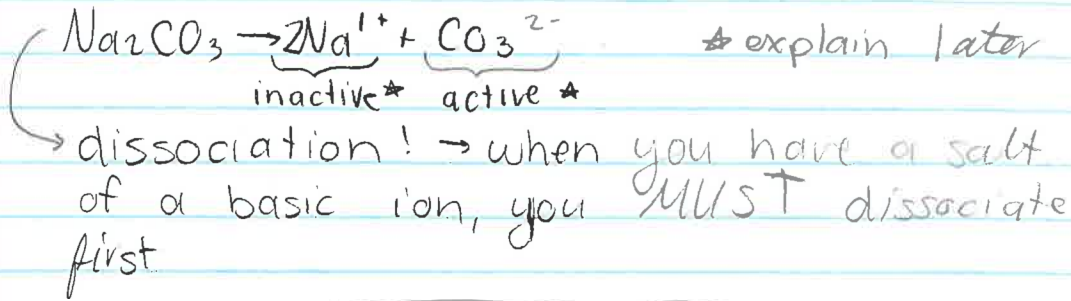 Na₂CO₃ → 2Na¹⁺ + CO₃²⁻ ☆ explain later
inactive☆ active ☆
→ dissociation! → when you have a salt
of a basic ion, you MUST dissociate
first